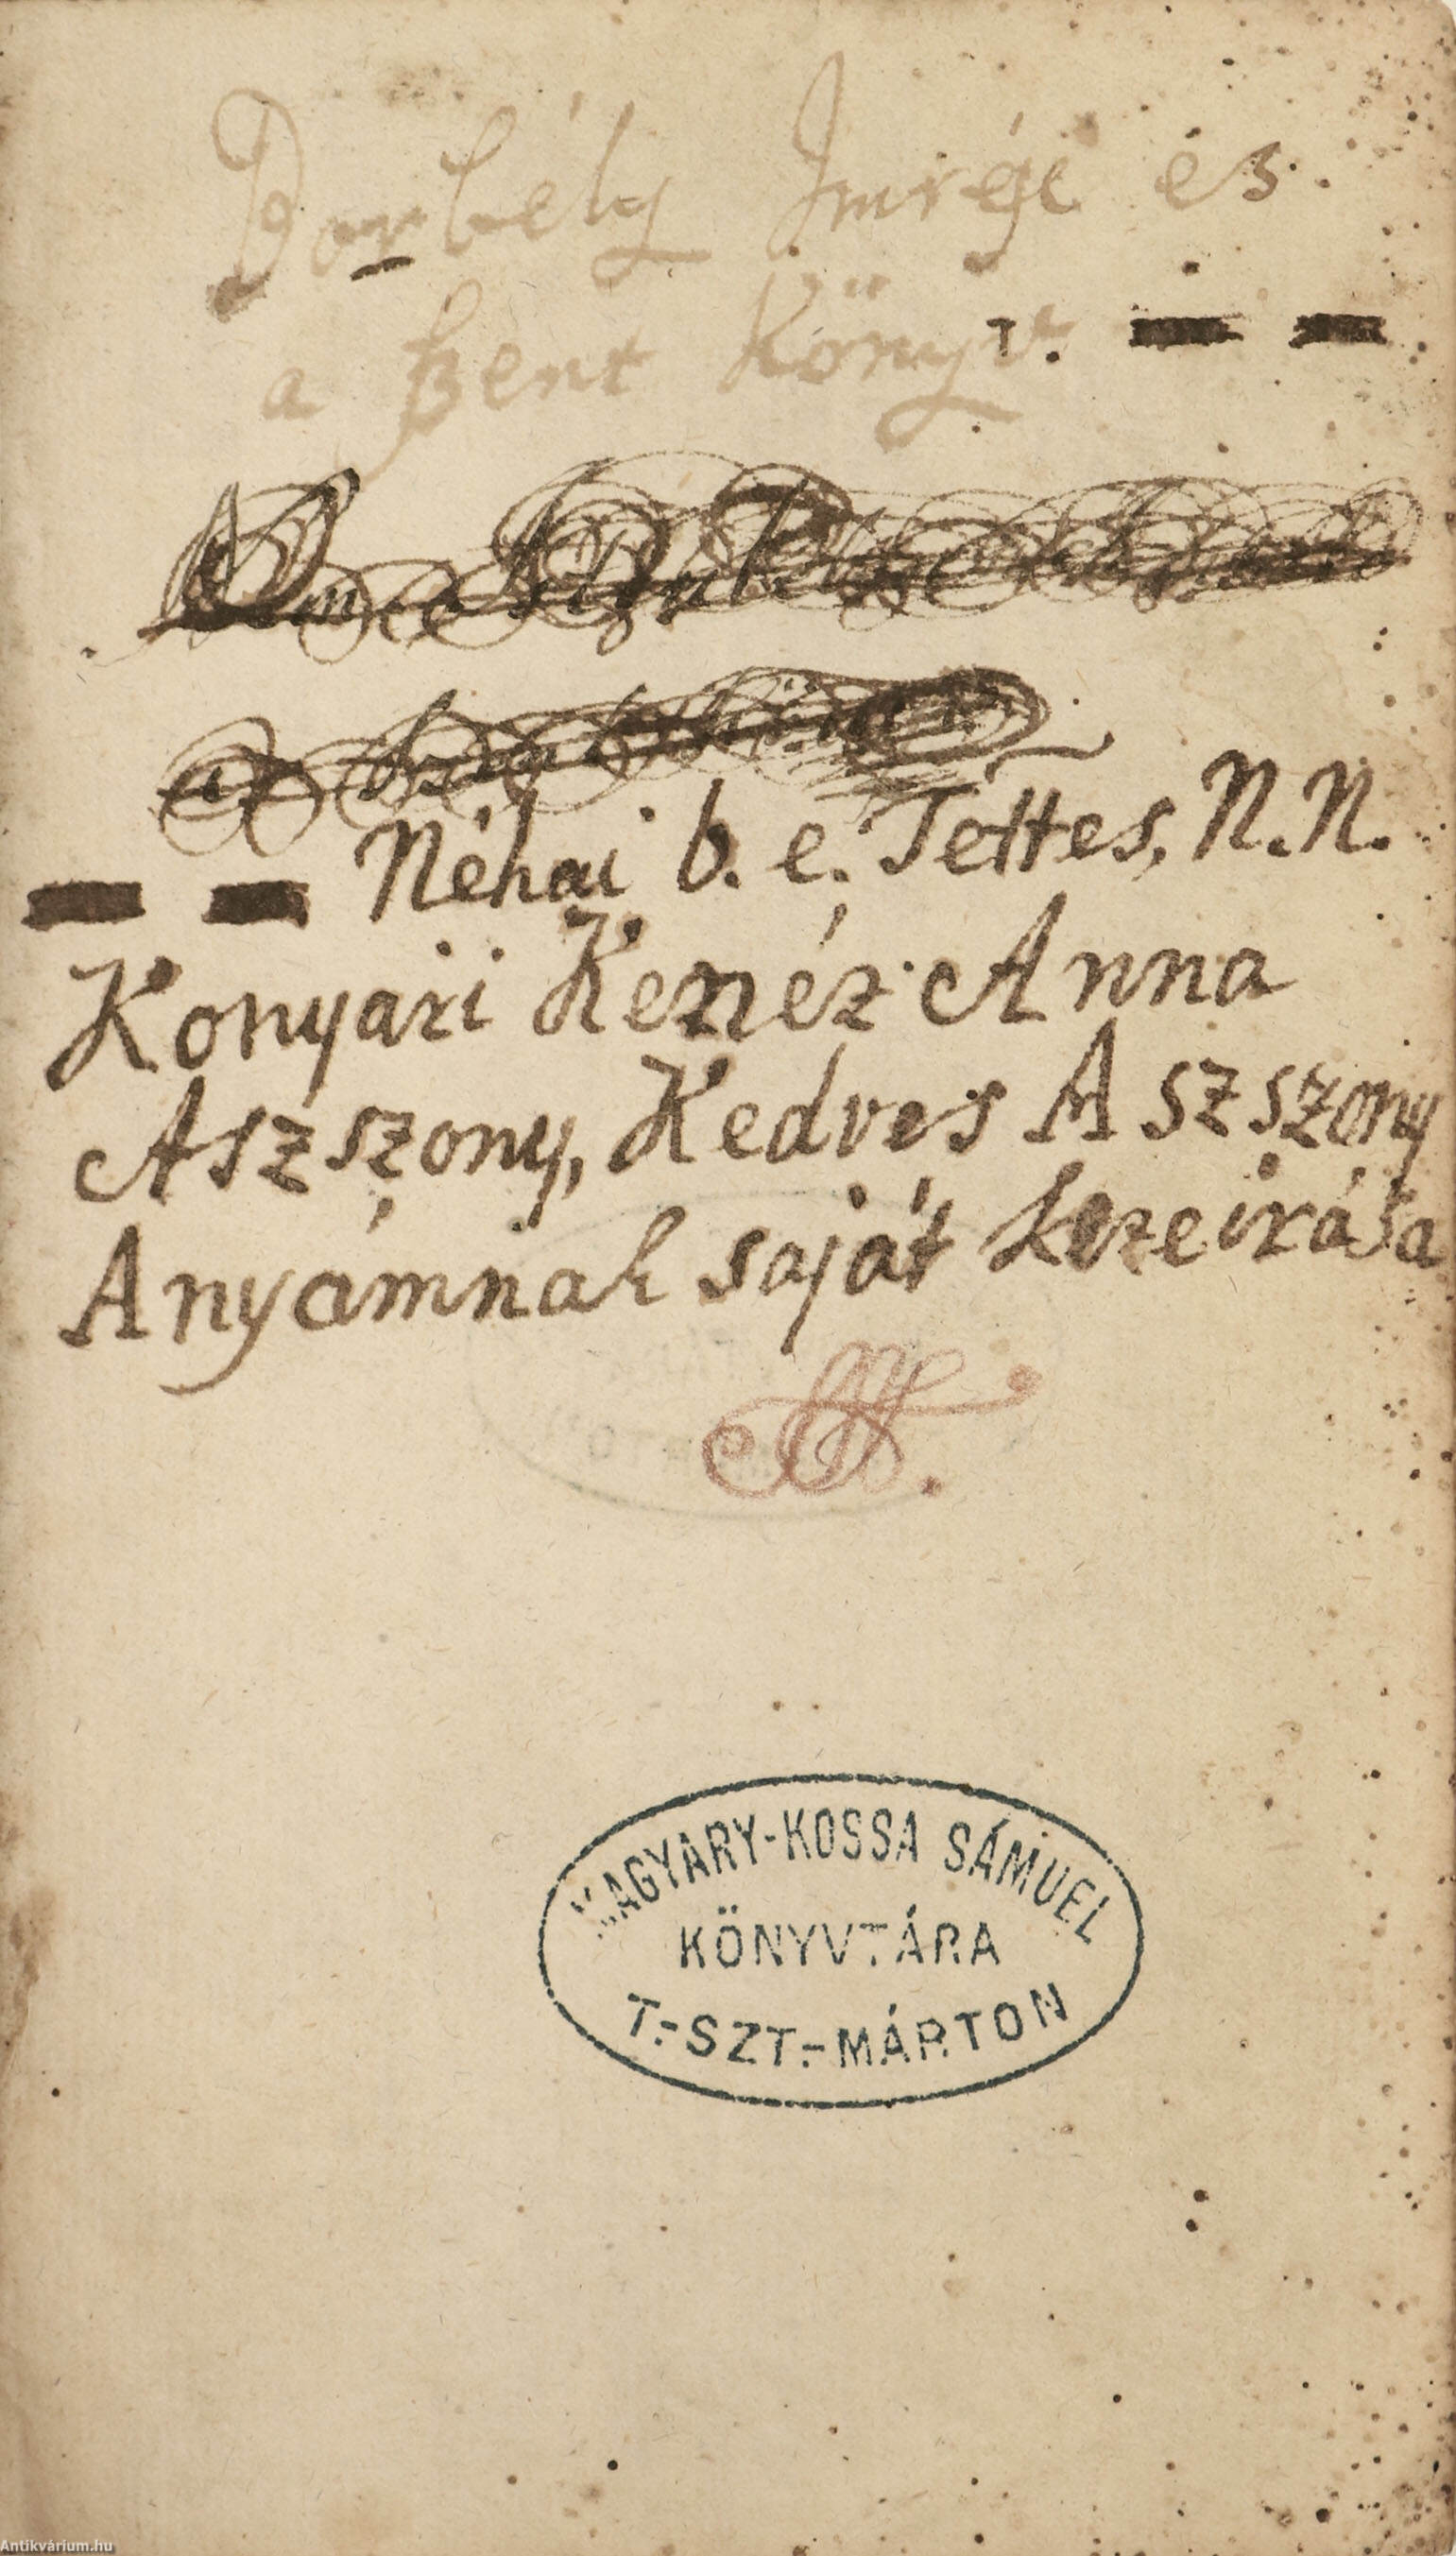 Borbély Imréjé és
a szent Könyv.
Néhai b. e. Téttes, N. N.
Konyári Kenéz Anna
Aszszony, Kedves Aszszony
Anyámnak saját kezeirása
MAGYARY-KOSSA SÁMUEL
KÖNYVTÁRA
T.-SZT.-MÁRTON
Antikvárium.hu